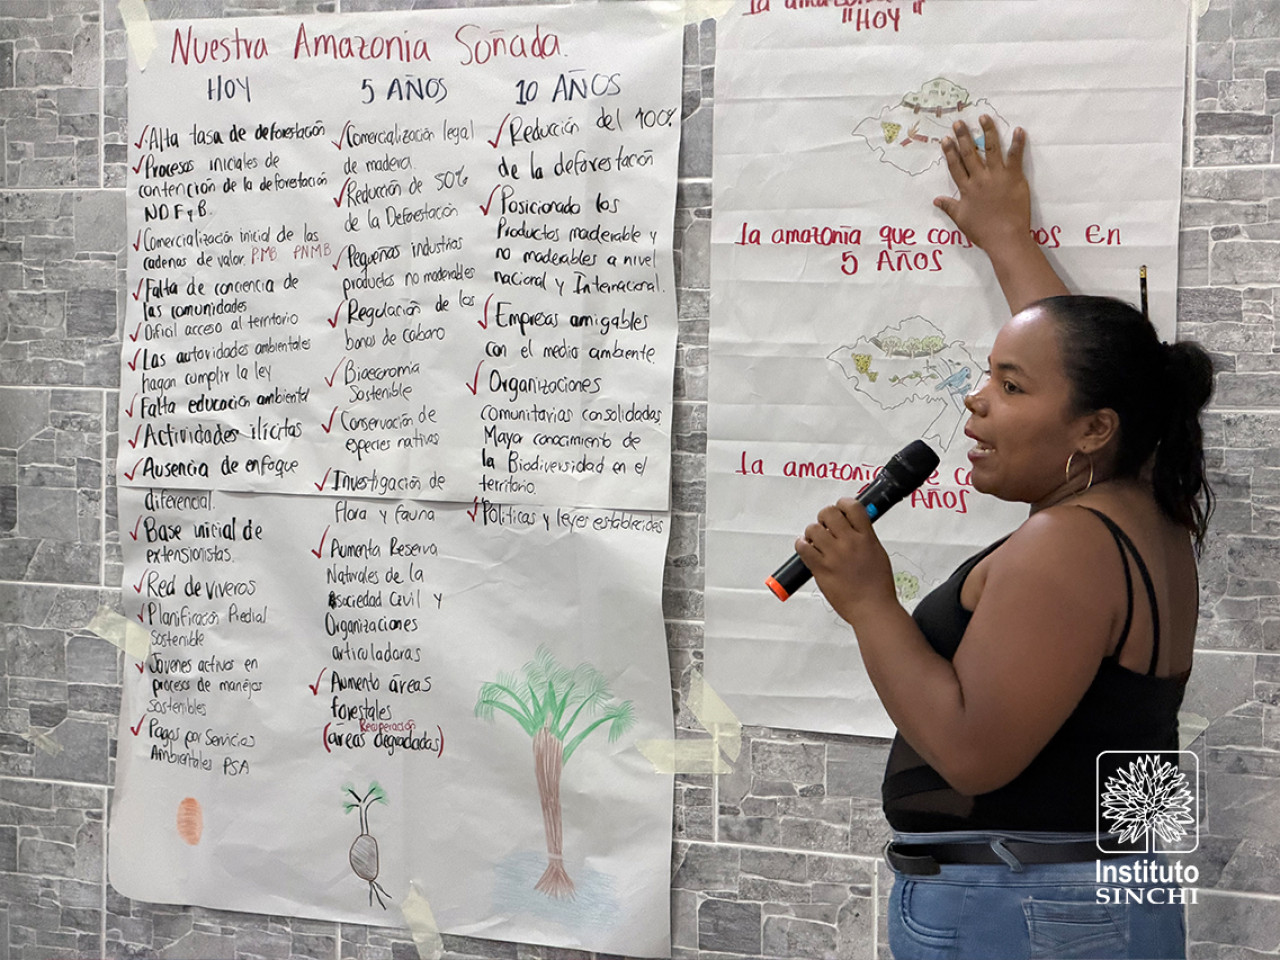 Nuestra Amazonia Soñada.
HOY
✓Alta tasa de deforestación
✓Procesos iniciales de
contención de la deforestación
NDFyB.
✓Comercialización inicial de las
cadenas de valor. PMB PNMB
✓Falta de conciencia de
las comunidades
✓Dificil acceso al territorio
✓Las autoridades ambientales
hagan cumplir la ley
✓Falta educación ambiental
✓Actividades ilícitas
✓Ausencia de enfoque
diferencial.
✓Base inicial de
extensionistas.
✓Red de viveros
✓Planificación Predial
Sostenible
✓Jovenes activos en
procesos de manejos
Sostenibles
✓Pagos por Servicios
Ambientales PSA
5 AÑOS
✓Comercialización legal
de madera
✓Reducción de 50%
de la Deforestación
✓Pequeñas industrias
productos no maderables
✓Regulación de los
bonos de Caboro
✓Bioeconomia
Sostenible
✓Conservación de
especies nativas
✓Investigación de
Flora y fauna
✓Aumenta Reserva
Naturales de la
sociedad Civil y
Organizaciones
articuladoras
✓Aumento áreas
forestales
Recuperación
(áreas degradadas)
10 AÑOS
✓Reducción del 100%
de la deforestación
✓Posicionado los
Productos maderable y
no maderables a nivel
nacional y Internacional.
✓Empresas amigables
con el medio ambiente.
✓Organizaciones
comunitarias consolidadas
Mayo conocimiento de
la Biodiversidad en el
territorio.
✓Politicas y leyes establecidas
la
"HOY"
la amazonía que en
5 AÑOS
la amazonía
AÑOS
Instituto
SINCHI